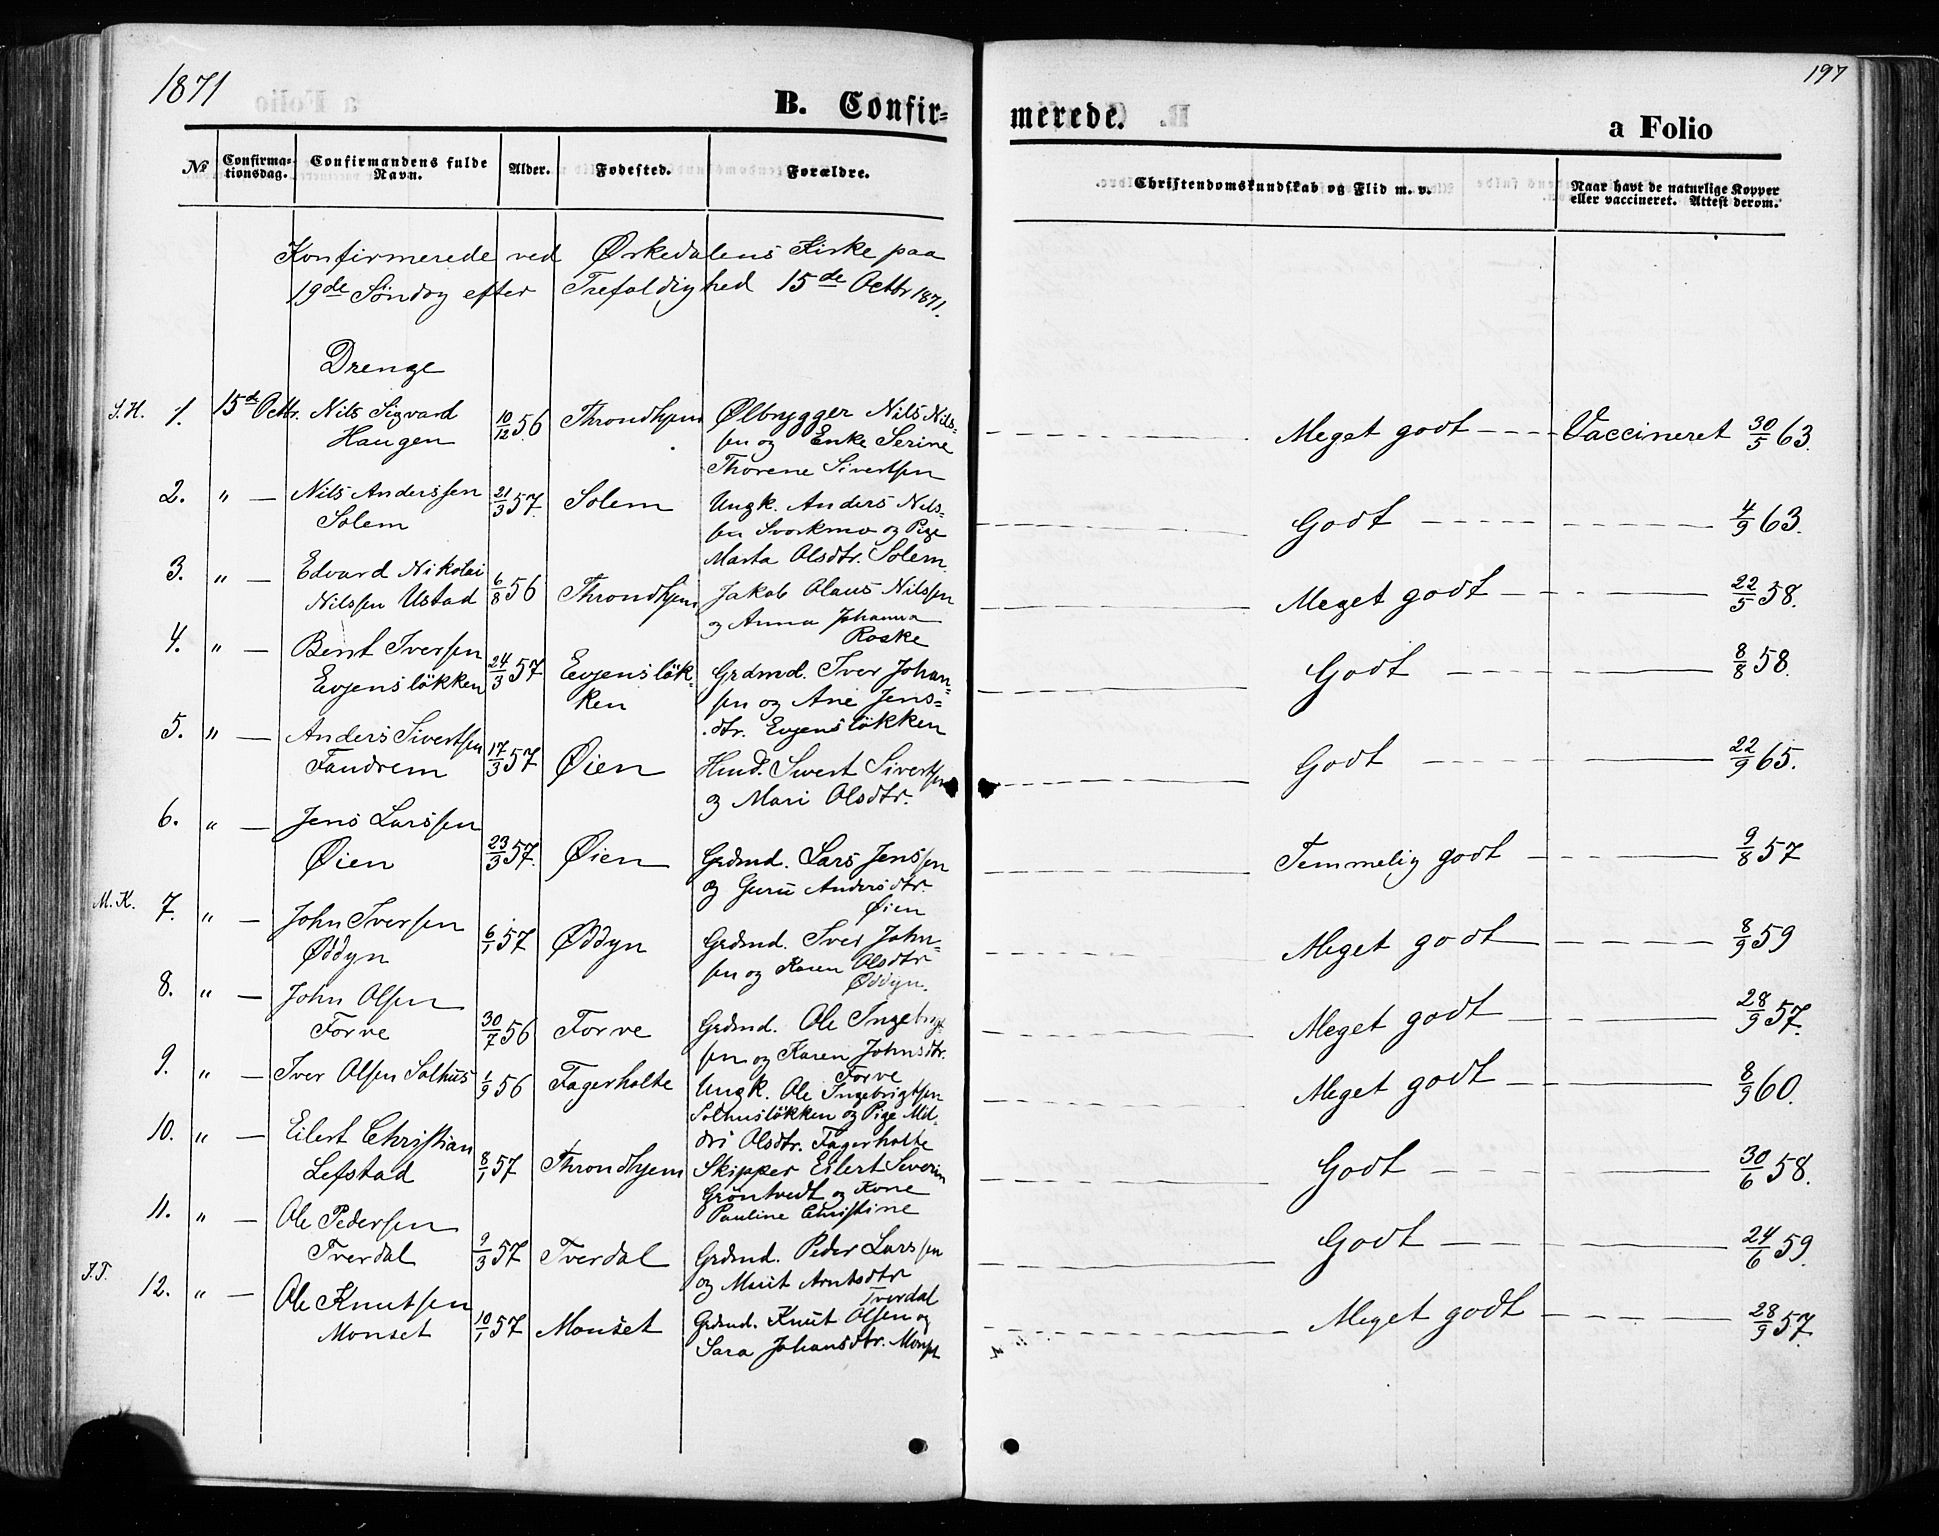 1871
197
B. Confir-
merede.
a Folio
№
Confirma-
tionsdag.
Confirmandens fulde
Navn.
Alder.
Fødested.
Forældre.
Christendomskundskab og Flid m. v.
Naar havt de naturlige Kopper
eller vaccineret. Attest derom.
Konfirmerede ved Ørkedalens Kirke paa
19de Söndag efter Trefoldighed 15de Octbr 1871.
Drenge
S.H. 1. 15de Octbr. Nils Sigvard 10/12 56 Throndhjem Ølbrygger Nils Nils- Meget godt Vaccineret 30/5 63.
Haugen sen og Enke Serine
Thorene Sivertsen
2. " — Nils Anderssen 21/3 57. Solem Ungk. Anders Nils- Godt 4/9 63.
Solem sen Svorkmo og Pige
Marta Olsdtr. Solem.
3. " — Edvard Nikolai 6/8 56 Throndhjem Jakob Olaus Nilssen Meget godt 22/5 58.
Nilssen Ustad og Anna Johanna
Roske
4. " — Bent Iversen 24/3 57 Evjenslök- Grdmd. Iver Johan- Godt 8/8 58.
Evjenslökken ken sen og Ane Jens-
dtr. Evjenslökken
5. " — Anders Sivertsen 17/3 57 Øien Hmd. Sivert Sivertsen Godt 22/9 65.
Fandrem og Mari Olsdtr.
6. " — Jens Larssen 23/3 57. Øien Grdmd. Lars Jenssen Temmelig godt 9/8 57
Øien og Guru Andersdtr.
Øien
M.K. 7. " — John Iversen 6/1 57 Øddyn Grdmd. Iver John- Meget godt 8/9 59
Øddyn sen og Karen Olsdtr
Øddyn.
8. " — John Olsen 30/7 56 Forve Grdmd. Ole Ingebrigt- Meget godt 28/9 57.
Forve sen og Karen Johnsdtr.
Forve
9. " — Iver Olsen Solhus 1/9 56 Fagerholte Ungk. Ole Ingebrigtsen Meget godt 8/9 60.
Solhuslökken og Pige Mil-
dri Olsdtr. Fagerholte
10. " — Eilert Christian 8/1 57 Throndhjem Skipper Eilert Severin Godt 30/6 58.
Lefstad Gröntvedt og Kone
Pauline Christine
11. " — Ole Pedersen 9/3 57 Tverdal Grdmd. Peder Larssen Godt 24/6 59.
Tverdal og Marit Arntsdtr
Tverdal
12. " — Ole Knutsen 10/1 57 Monset Grdmd. Knut Olsen og Meget godt 28/9 57.
Monset Sara Johansdtr. Monset